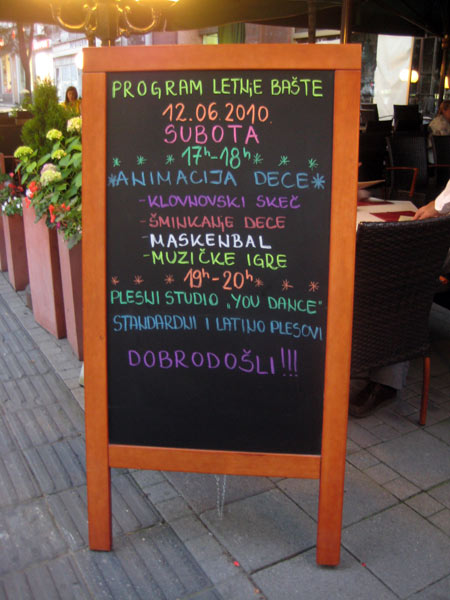 PROGRAM LETNJE BAŠTE
12.06.2010.
SUBOTA
* * * 17h-18h * * *
*ANIMACIJA DECE*
-KLOVNOVSKI SKEČ
-ŠMINKANJE DECE
-MASKENBAL
-MUZIČKE IGRE
* * * 19h-20h * * *
PLESNI STUDIO „YOU DANCE"
STANDARDNI I LATINO PLESOVI
DOBRODOŠLI!!!